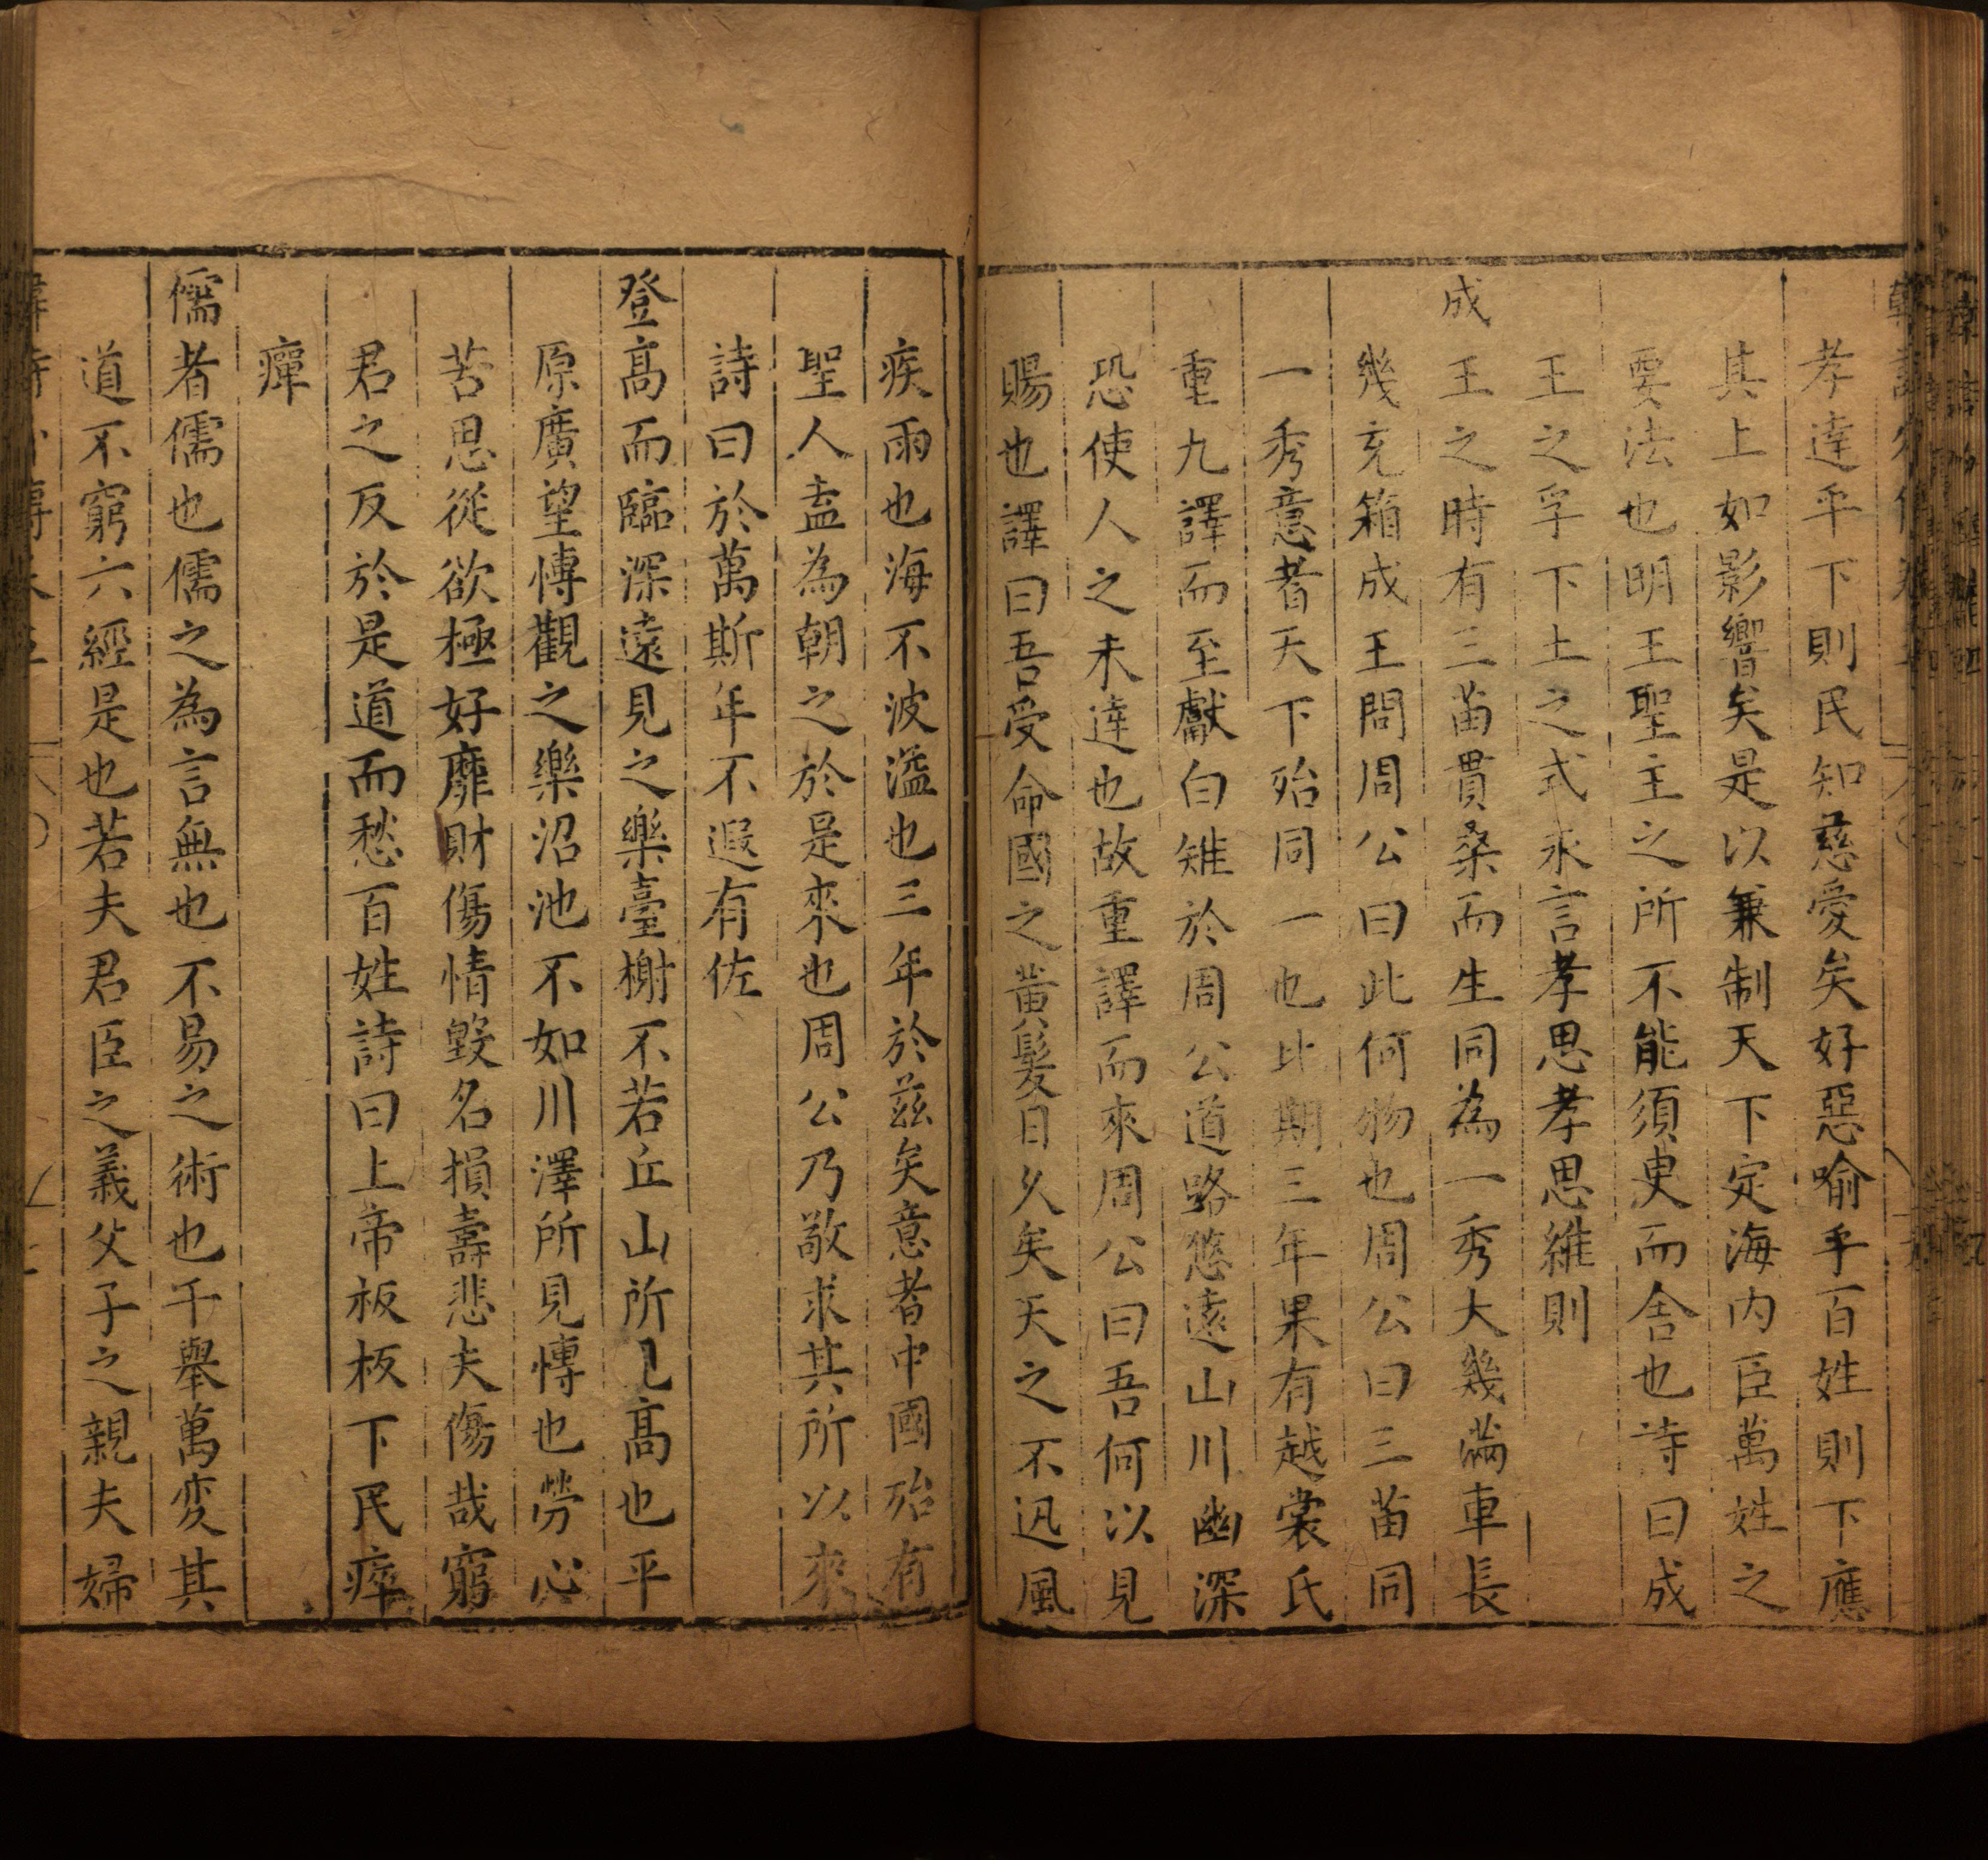 孝達乎下則民知慈愛矣好惡喻乎百姓則下應
其上如影響矣是以兼制天下定海内臣萬姓之
要法也明王聖主之所不能須臾而舍也詩曰成
王之孚下土之式永言孝思孝思維則
成王之時有三苗貫桑而生同為一秀大幾滿車長
幾充箱成王問周公曰此何物也周公曰三苗同
一秀意者天下殆同一也比期三年果有越裳氏
重九譯而至獻白雉於周公道路悠遠山川幽深
恐使人之未達也故重譯而來周公曰吾何以見
賜也譯曰吾受命國之黄髮曰久矣天之不迅風
疾雨也海不波溢也三年於兹矣意者中國殆有
聖人盍為朝之於是來也周公乃敬求其所以來
詩曰於萬斯年不遐有佐
登高而臨深遠見之樂臺榭不若丘山所見高也平
原廣望博觀之樂沼池不如川澤所見博也勞心
苦思從欲極好靡財傷情毀名損壽悲夫傷哉窮
君之反於是道而愁百姓詩曰上帝板板下民瘁
癉
儒者儒也儒之為言無也不易之術也千舉萬变其
道不窮六經是也若夫君臣之義父子之親夫婦